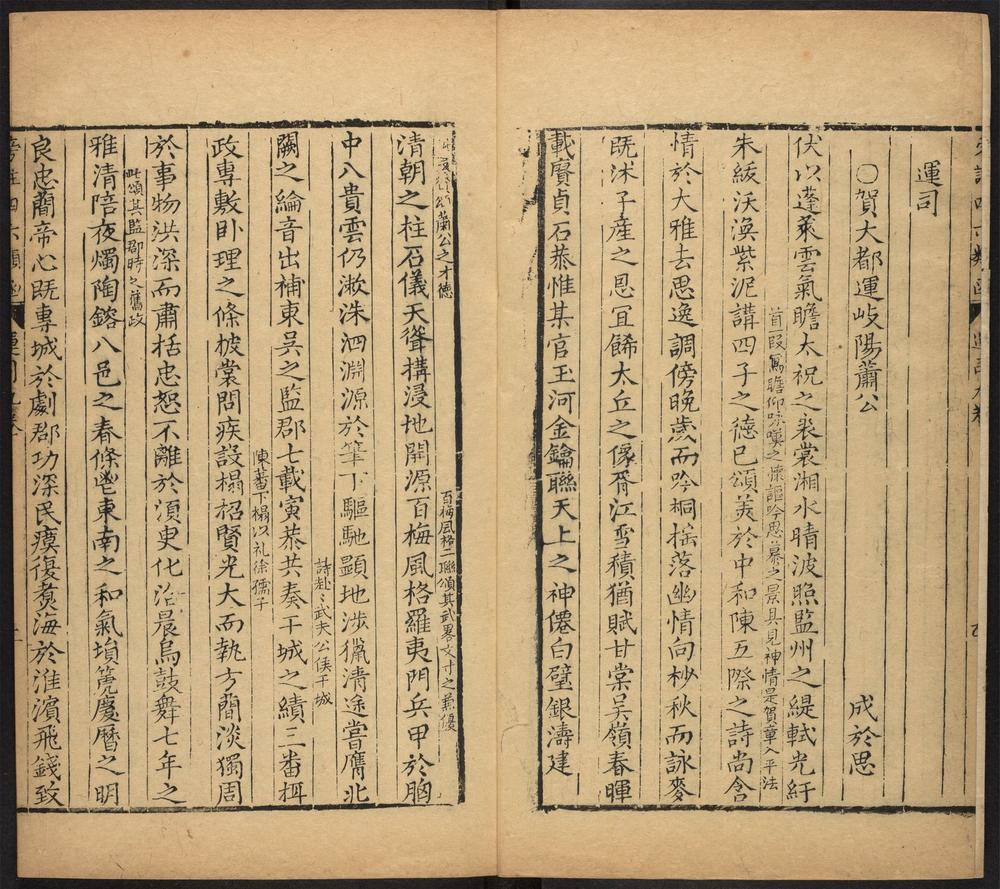 運司
○賀大都運岐陽蕭公
成於思
伏以蓬萊雲氣瞻太祝之裘裳湘水晴波照監州之緹軾光紆
首一段寫瞻仰咏嘆之懷謳吟思慕之景具見神情是賀章入平法
朱紱沃渙紫泥講四子之德已頌美於中和陳五際之詩尚含
情於大雅去思逸調傍晚歲而吟桐搖落幽情向杪秋而詠麥
既沐子產之恩宜餙太丘之像胥江雪積猶賦甘棠吳嶺春暉
載賡貞石恭惟某官玉河金鑰聯天上之神僊白璧銀濤建
蕭公之才德
清朝之柱石儀天聳搆浸地開源百梅風格羅夷門兵甲於胸
百梅風格二聯頌其武畧文才之兼優
中八貴雲仍漱洙泗淵源於筆下驅馳顯地涉獵清途嘗膺北
闕之綸音出補東吳之監郡七載寅恭共奏干城之績三番捆
詩赳〻武夫公侯干城
政專敷卧理之條披裳問疾設榻招賢光大而執方簡淡獨周
陳蕃下榻以礼徐孺子
於事物洪深而肅括忠恕不離於須臾化洽晨烏鼓舞七年之
雅清陪夜燭陶鎔八邑之春條鬯東南之和氣塤箎慶曆之明
此頌其監郡時之舊政
良忠簡帝心既專城於劇郡功深民瘼復煑海於淮濱飛錢致